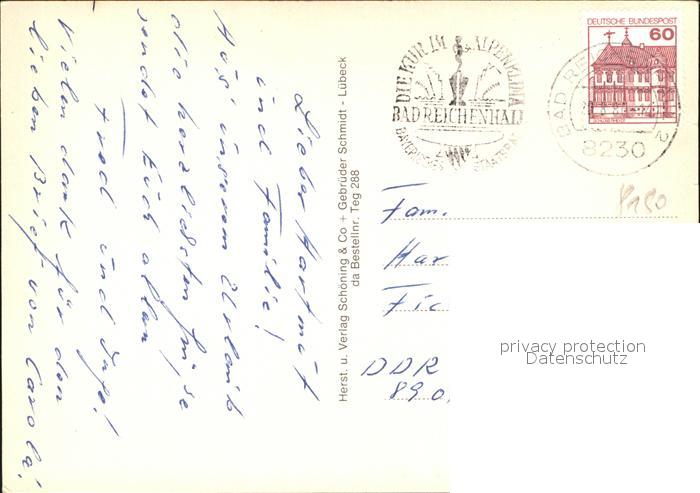 Lieber Hartmut
und Familie!
Aus unserem Urlaub
die herzlichsten Grüsse
sendet Euch allen
Fred und Inge!
Vielen dank für den
lieben Brief von Carola!
Herst. u. Verlag Schöning & Co + Gebrüder Schmidt - Lübeck
da Bestellnr. Teg 288
DIE KUR IM ALPENKLIMA
BAD REICHENHALL
BAYERISCHES STAATSBAD
DEUTSCHE BUNDESPOST
60
BAD REI
2
8230
Fam.
Har
Fic
DDR
890
privacy protection
Datenschutz